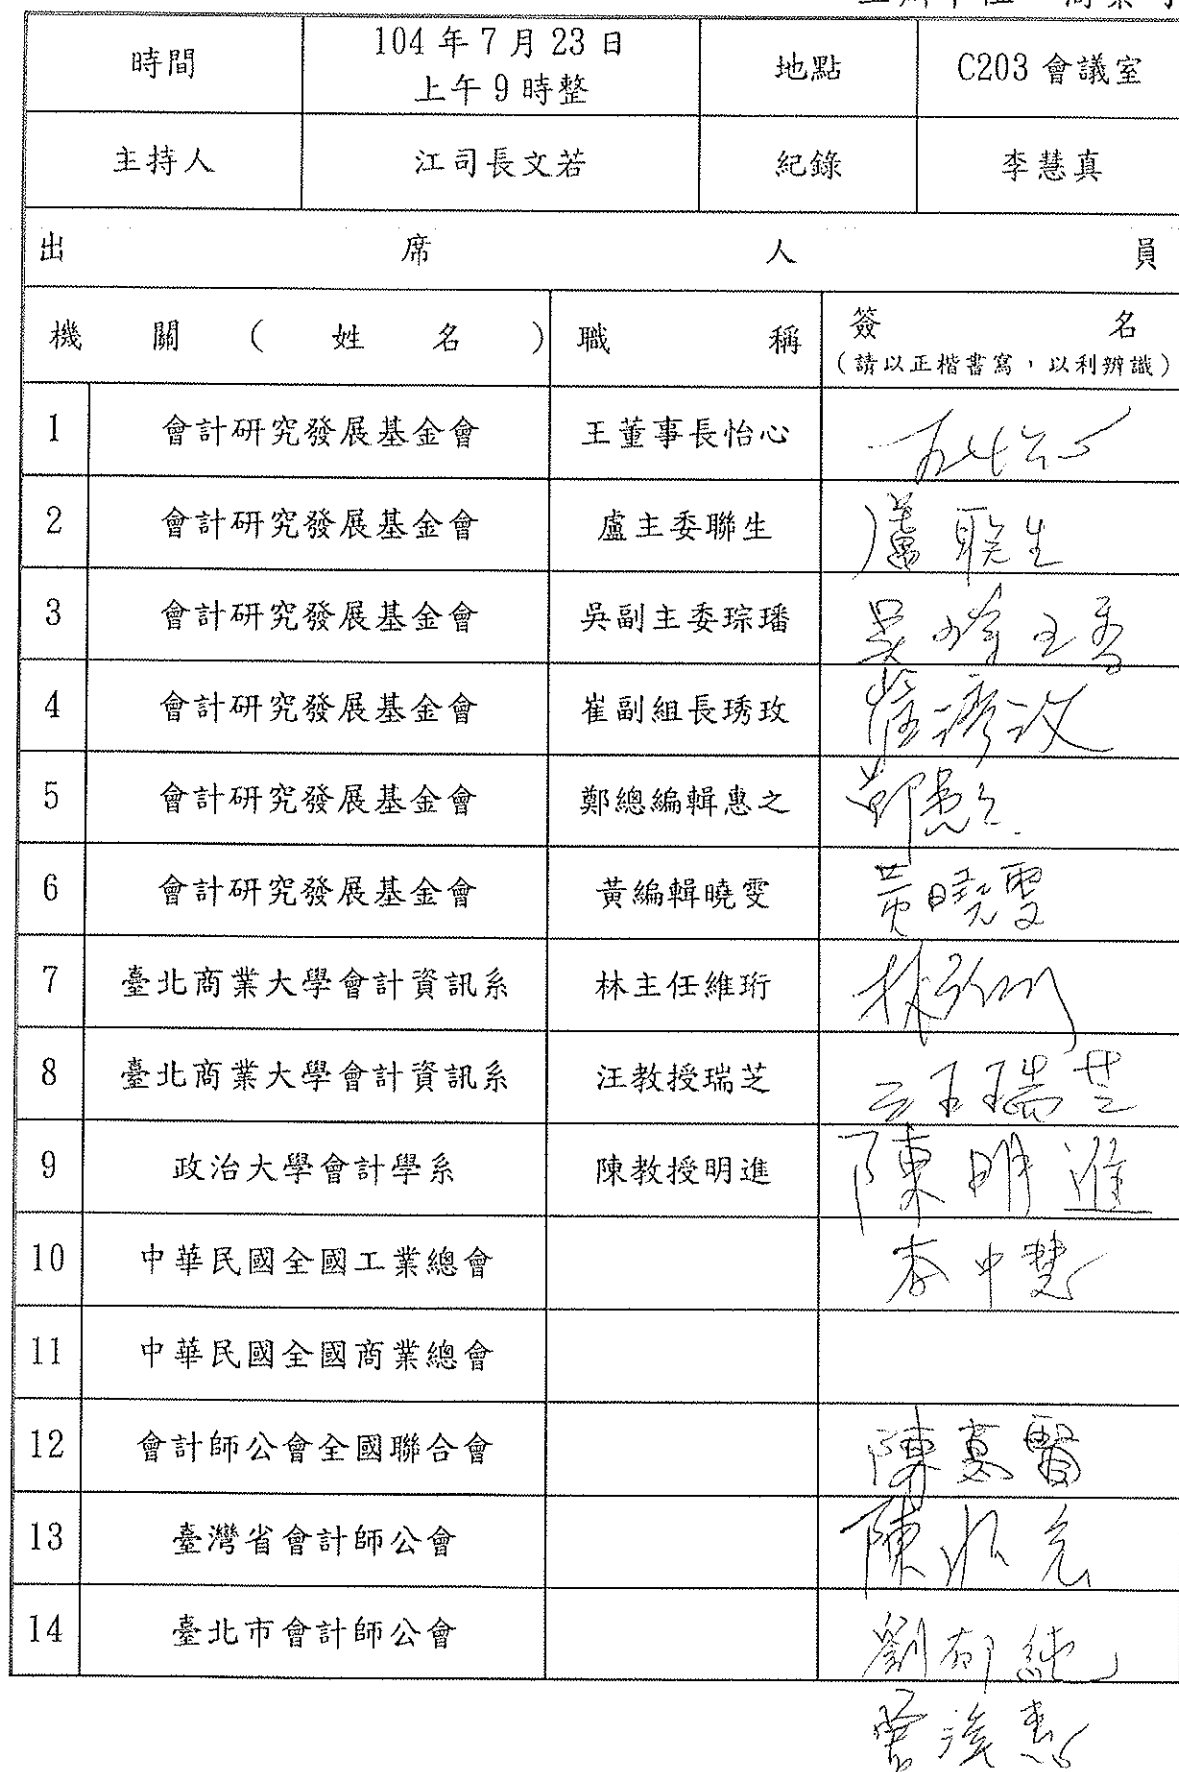 時間 104年7月23日 地點 C203會議室
上午9時整
主持人 江司長文若 紀錄 李慧真
出席人員
機關(姓名) 職稱 簽名
(請以正楷書寫，以利辨識)
1 會計研究發展基金會 王董事長怡心 王怡心
2 會計研究發展基金會 盧主委聯生 盧聯生
3 會計研究發展基金會 吳副主委琮璠 吳琮璠
4 會計研究發展基金會 崔副組長琇玫 崔琇玫
5 會計研究發展基金會 鄭總編輯惠之 鄭惠之
6 會計研究發展基金會 黃編輯曉雯 黃曉雯
7 臺北商業大學會計資訊系 林主任維珩 林維珩
8 臺北商業大學會計資訊系 汪教授瑞芝 汪瑞芝
9 政治大學會計學系 陳教授明進 陳明進
10 中華民國全國工業總會 李中慧
11 中華民國全國商業總會
12 會計師公會全國聯合會 陳
13 臺灣省會計師公會 陳
14 臺北市會計師公會 劉郁純